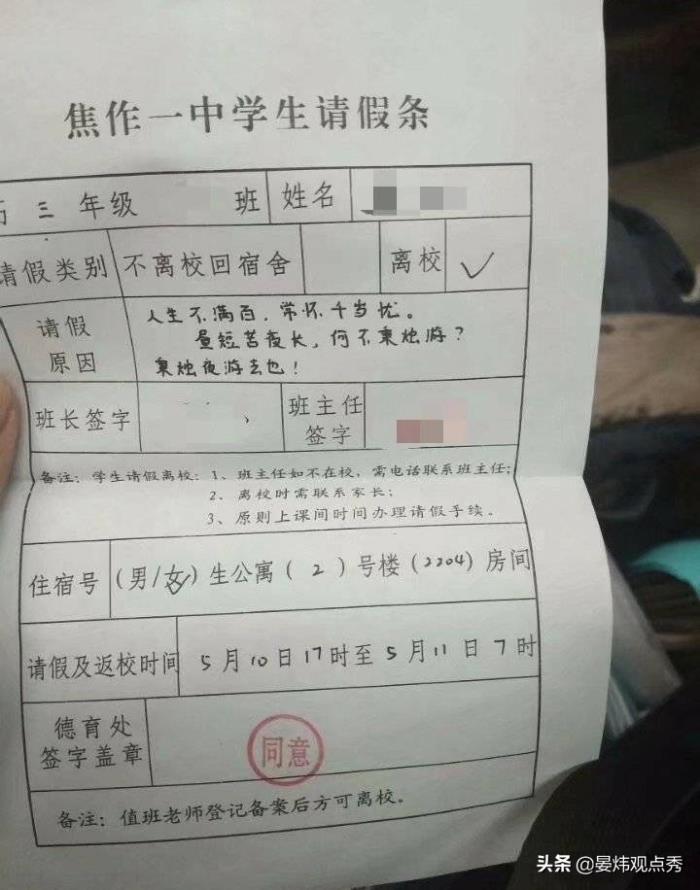 焦作一中学生请假条
三年级 班 姓名
请假类别 不离校回宿舍 离校 ✓
请假 人生不满百,常怀千岁忧。
昼短苦夜长,何不秉烛游?
原因 秉烛夜游去也!
班长签字 班主任
签字
备注:学生请假离校:1、班主任如不在校,需电话联系班主任;
2、离校时需联系家长;
3、原则上课间时间办理请假手续。
住宿号 (男/女)生公寓(2)号楼(2204)房间
请假及返校时间 5月10日17时至5月11日7时
德育处
签字盖章 同意
备注:值班老师登记备案后方可离校。
头条 @晏炜观点秀